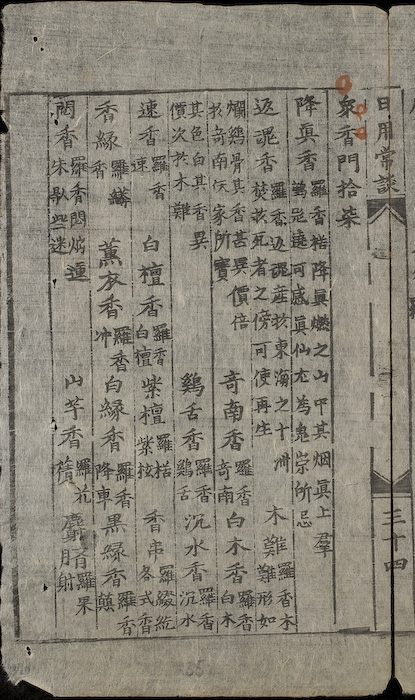 日用常談
三十四
衆香門拾柒
降眞香 羅香楛降眞燃之山中其烟眞上羣鶴 遶可感眞仙尤為鬼祟所忌
返魂香 羅香返魂産於東海之十洲焚於死者之傍可使再生 木難 羅香木難形如
爛鷄骨其香甚異價倍於奇南 家所寶 奇南香 羅香奇南 白木香 羅香白木
其色白其香異價次於木難 鷄舌香 羅香鷄舌 沉水香 羅香沉水
速香 羅香速 白檀香 羅香白檀 紫檀 羅楛紫 香串 羅綴統各式香
香緑 羅 香 薰衣香 羅香冲 白緑香 羅香降車 黒緑香 羅香
悶香 羅香悶 朱 些迷 山芋香 羅 麝臍 羅果射